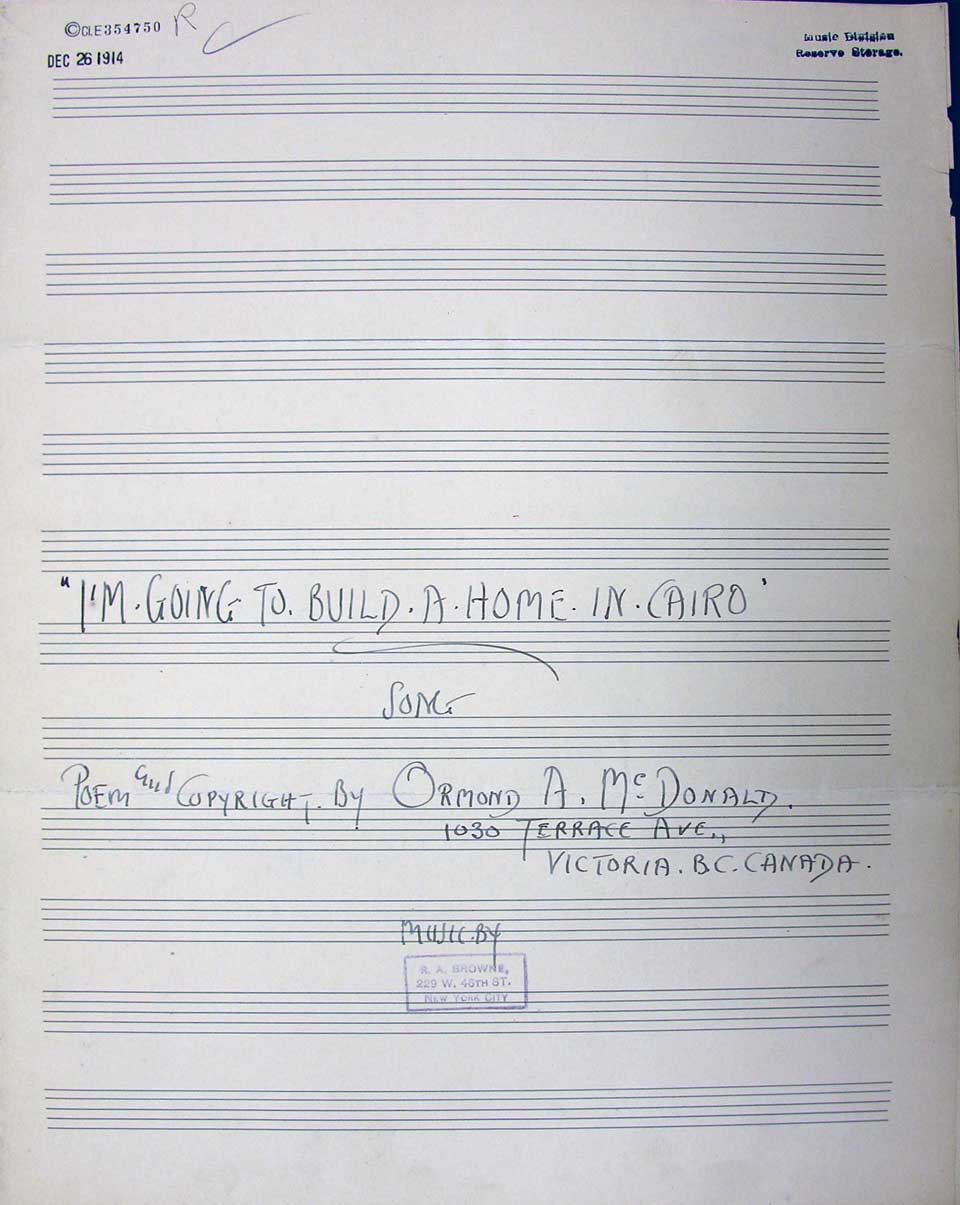 ©CLE354750 R
DEC 26 1914
Music Division
Reserve Storage.
"I'M. GOING TO. BUILD. A. HOME. IN. CAIRO"
SONG
POEM and COPYRIGHT. BY ORMOND A. McDONALD.
1030 TERRACE AVE.,
VICTORIA. B.C. CANADA.
MUSIC. BY
R. A. BROWNE,
229 W. 46TH ST.
NEW YORK CITY